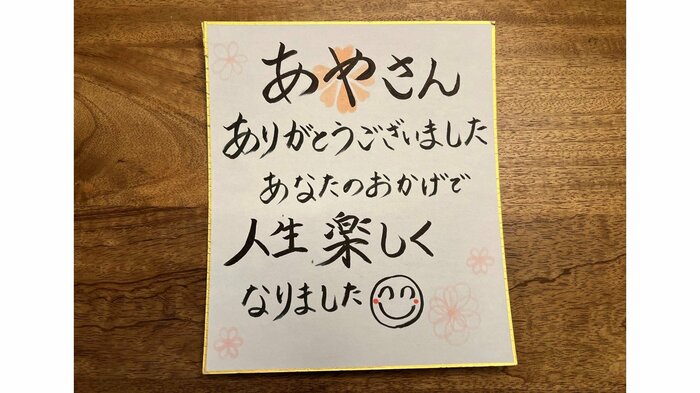 あやさん
ありがとうございました
あなたのおかげで
人生楽しく
なりました